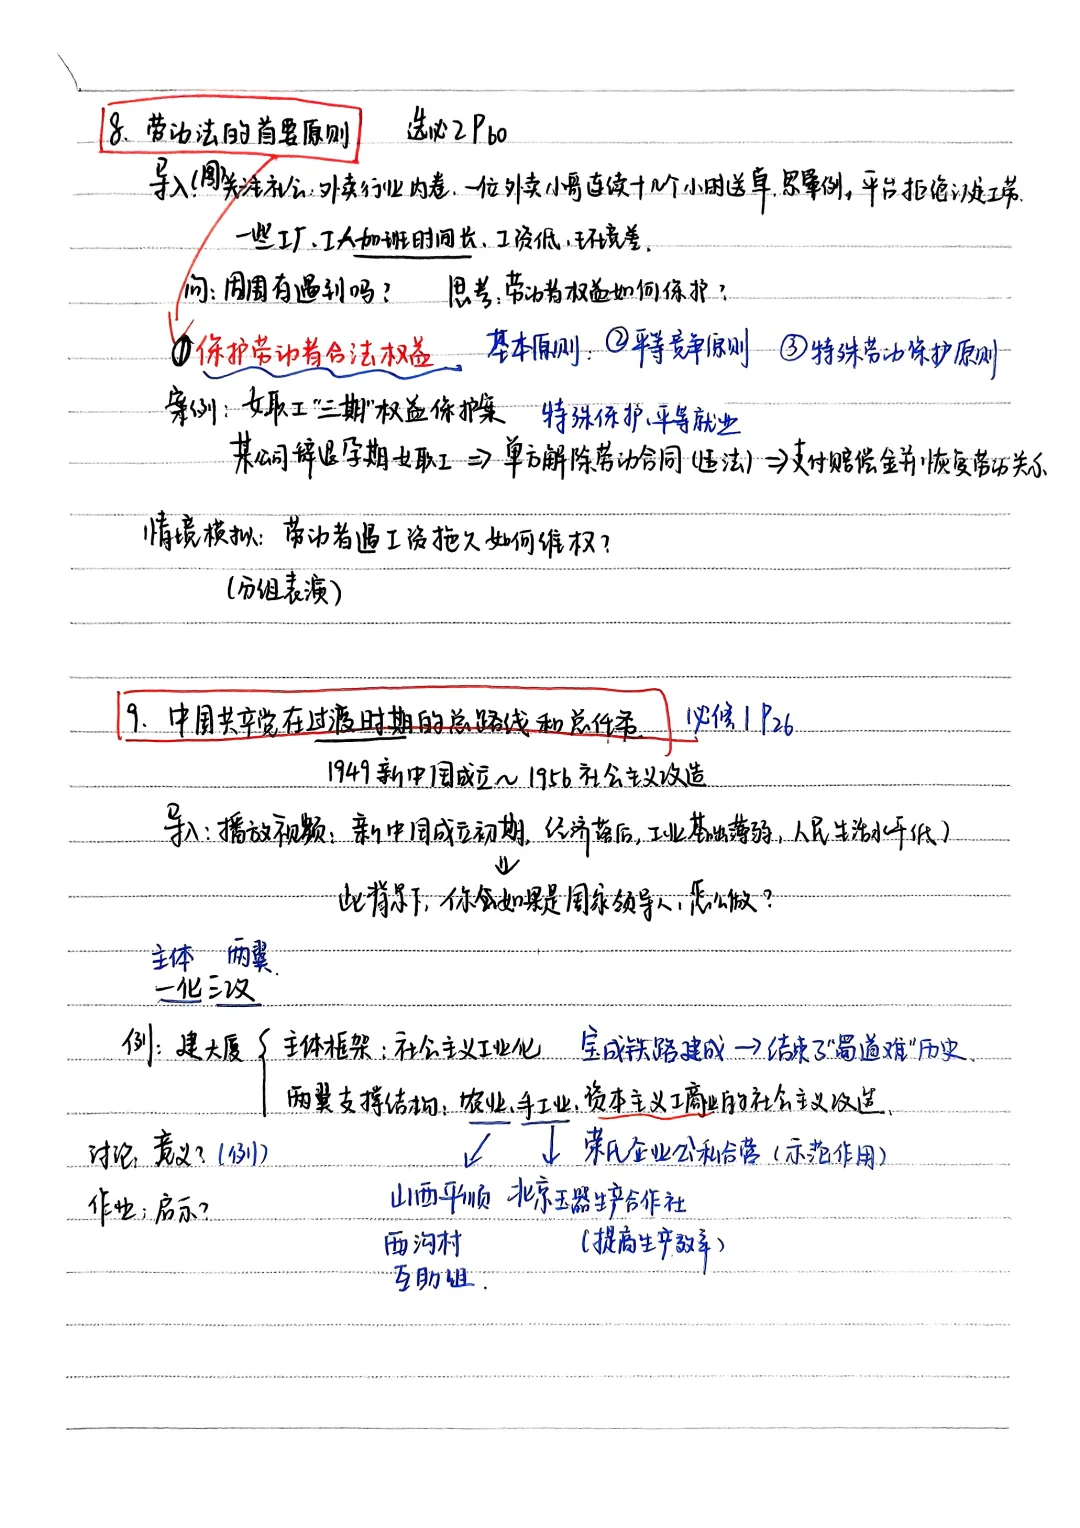 8. 劳动法的首要原则 选必2 P60
导入(图) 关注社会:外卖行业内卷.一位外卖小哥连续十几个小时送单.思晕倒,平台拒绝认定工劳.
一些工厂、工人加班时间长、工资低、环境差.
问:周围有遇到吗? 思考:劳动者权益如何保护?
①保护劳动者合法权益 基本原则:②平等竞争原则 ③特殊劳动保护原则
案例:女职工“三期”权益保护案 特殊保护、平等就业
某公司辞退孕期女职工 => 单方解除劳动合同(违法) => 支付赔偿金并恢复劳动关系
情境模拟:劳动者遇工资拖欠如何维权?
(分组表演)
9. 中国共产党在过渡时期的总路线和总任务. 必修1 P26
1949新中国成立~1956社会主义改造
导入:播放视频:新中国成立初期,经济落后,工业基础薄弱,人民生活水平低)
↓
此背景下,你会如果是国家领导人,怎么做?
主体 两翼.
一化三改
例:建大厦 { 主体框架:社会主义工业化 宝成铁路建成→结束了“蜀道难”历史.
两翼支撑结构:农业、手工业、资本主义工商业的社会主义改造.
讨论:意义?(例) ↙ ↓ 荣氏企业公私合营(示范作用)
作业:启示? 山西平顺 北京玉器生产合作社
西沟村 (提高生产效率)
互助组.